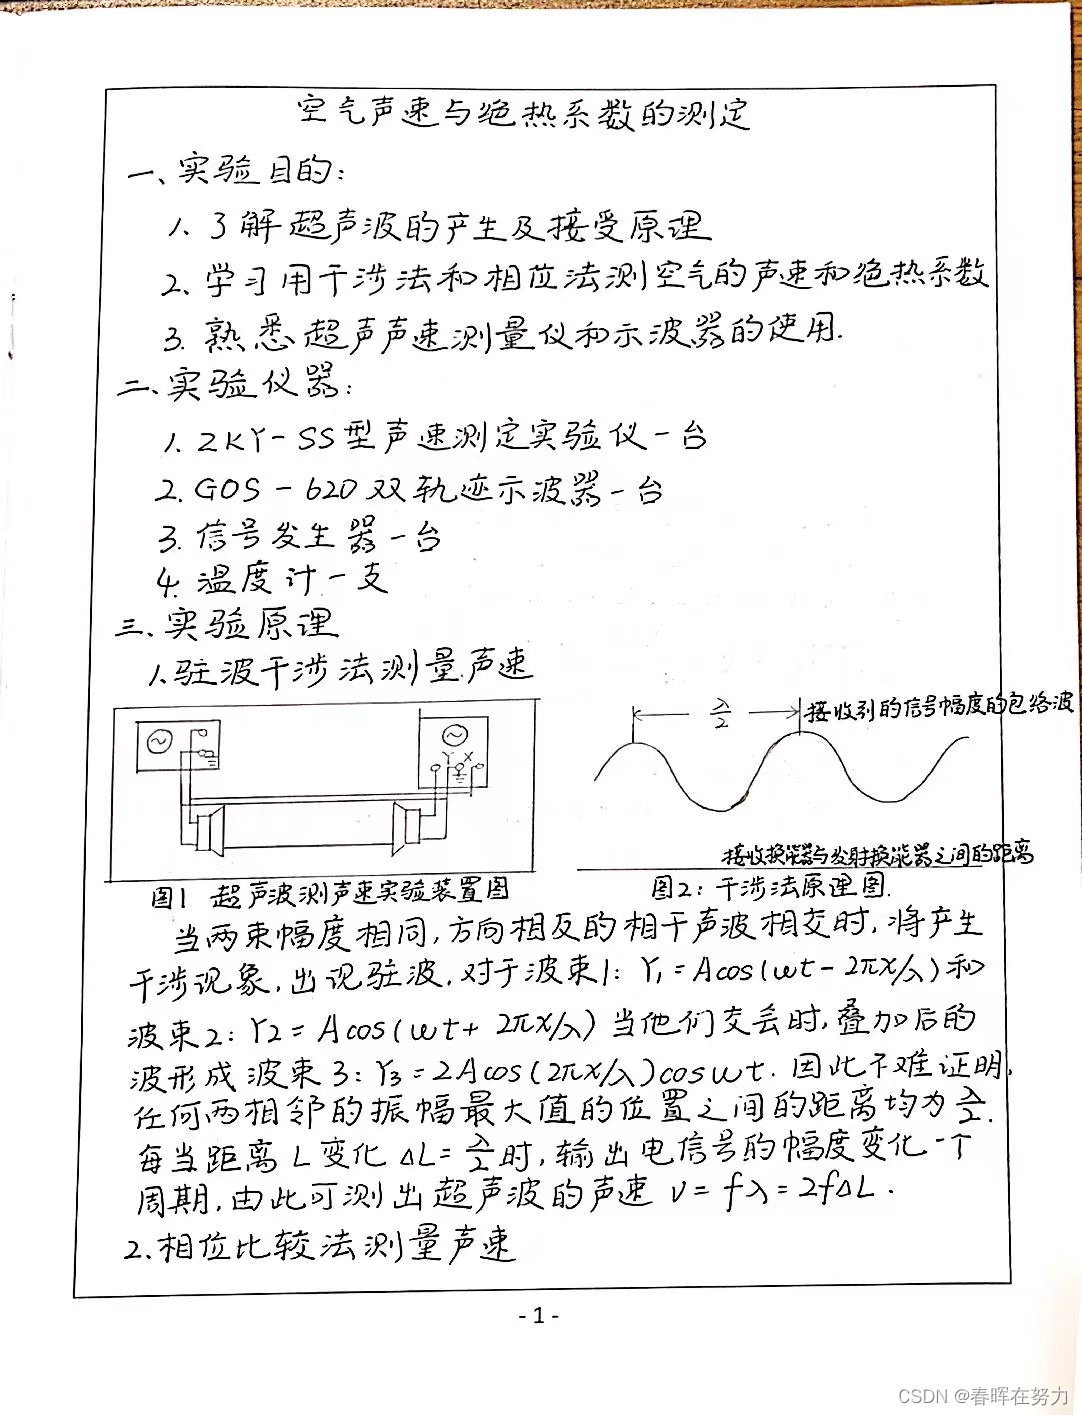 空气声速与绝热系数的测定
一、实验目的：
1. 了解超声波的产生及接受原理
2. 学习用干涉法和相位法测空气的声速和绝热系数
3. 熟悉超声声速测量仪和示波器的使用.
二、实验仪器：
1. ZKY-SS型声速测定实验仪一台
2. GOS-620双轨迹示波器一台
3. 信号发生器一台
4. 温度计一支
三、实验原理
1. 驻波干涉法测量声速
Y X
λ/2
接收到的信号幅度的包络波
接收换能器与发射换能器之间的距离
图1 超声波测声速实验装置图
图2：干涉法原理图.
当两束幅度相同,方向相反的相干声波相交时,将产生
干涉现象,出现驻波.对于波束1：Y₁=Acos(ωt-2πX/λ)和
波束2：Y2=Acos(ωt+2πX/λ)当他们交会时,叠加后的
波形成波束3：Y₃=2Acos(2πX/λ)cosωt. 因此不难证明,
任何两相邻的振幅最大值的位置之间的距离均为λ/2.
每当距离L变化ΔL=λ/2时,输出电信号的幅度变化一个
周期,由此可测出超声波的声速 v=fλ=2fΔL.
2. 相位比较法测量声速
- 1 -
CSDN @春晖在努力